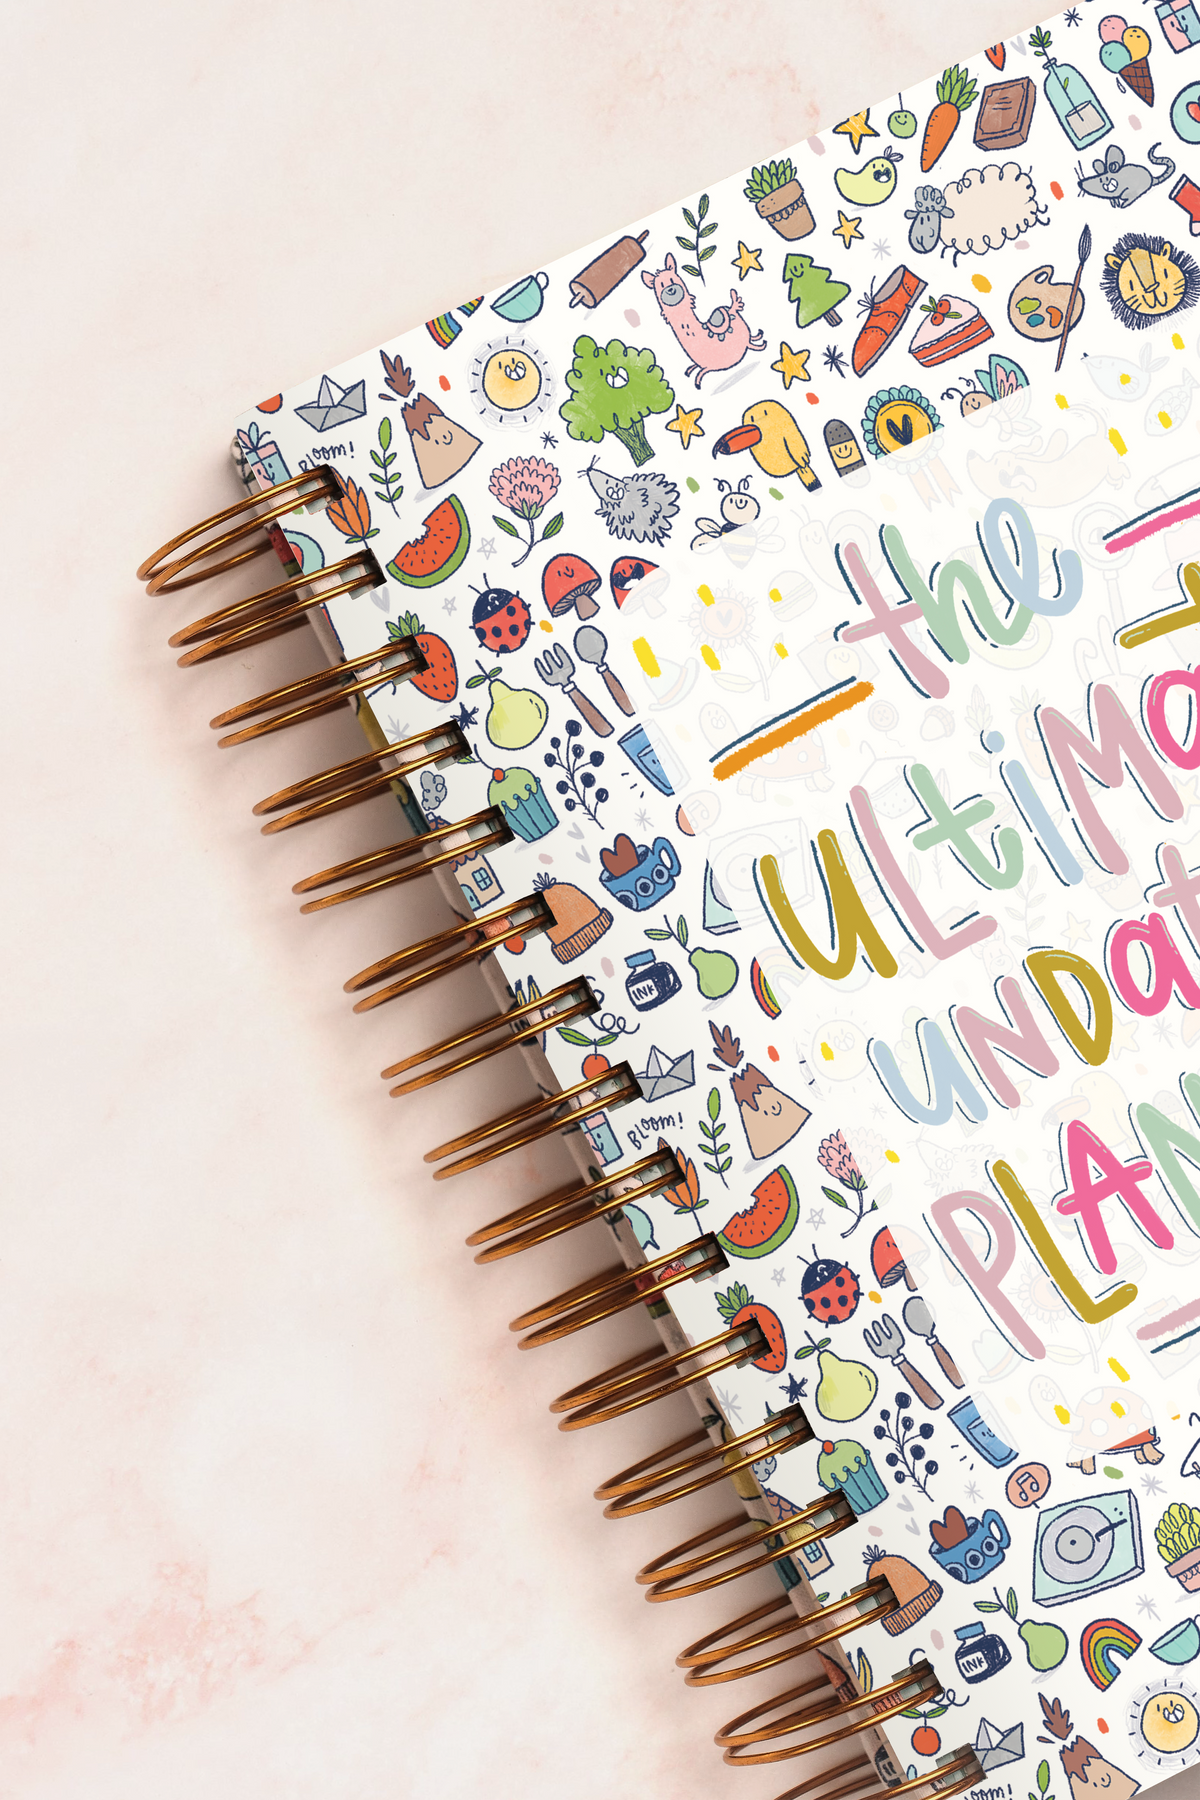 the
ULtiMa
UNDat
PLAN
BLOOM!
INK
BLOOM!
INK